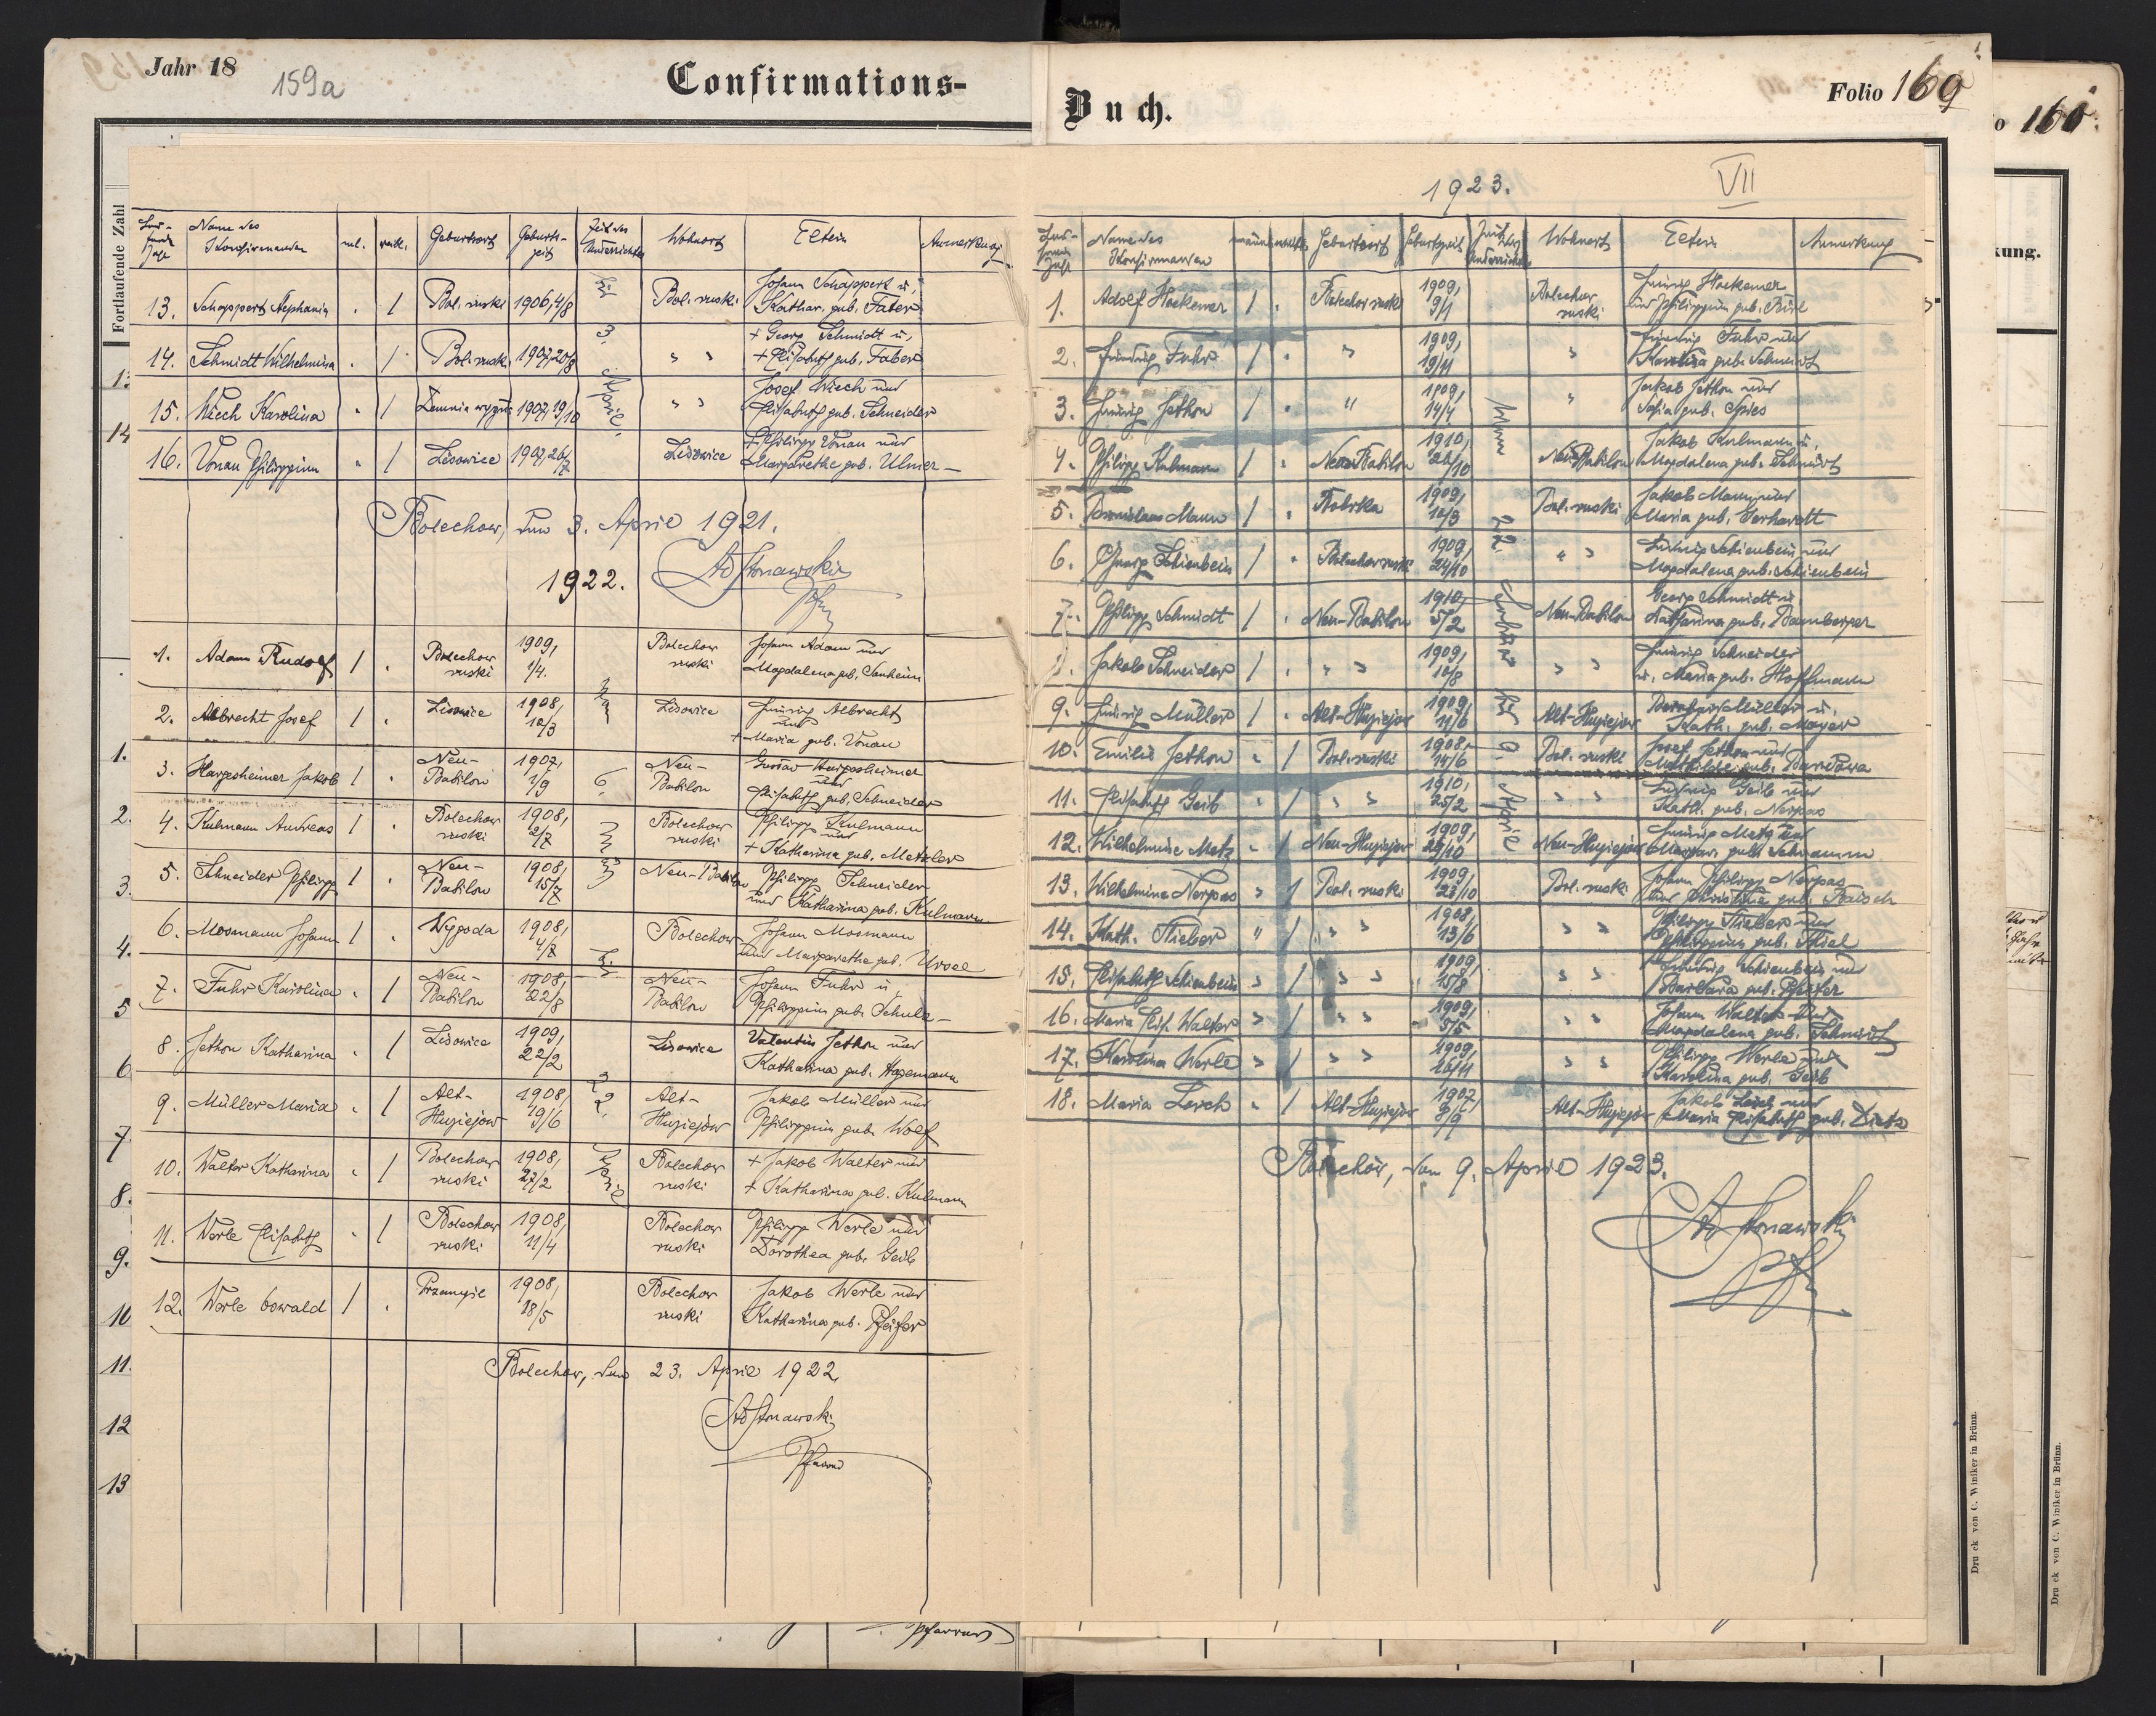 Jahr 18
159a
Confirmations-
Fortlaufende Zahl
Name des Konfirmanden ml. weibl. Geburtsort Geburtszeit Zeit des Unterrichts Wohnort Eltern Anmerkung
13. Schappert Stephania . / Bol. ruski 1906, 4/8 Bol. ruski Johann Schappert u. Kathar. geb. Faber
14. Schmidt Wilhelmina . / Bol. ruski 1907, 20/8 " " + Georg Schmidt u. + Elisabeth geb. Faber
15. Wiech Karolina . / 1907, 19/10 " " Josef Wiech und Elisabeth geb. Schneider
16. Vonau Philippina . / Lisowice 1907, 26/7 Lisowice + Philipp Vonau und Margarethe geb. Ulmer
3. April
Bolechow, den 3. April 1921.
1922.
1. Adam Rudolf / . Bolechow ruski 1909, 1/4. Bolechow ruski Johann Adam und Magdalena geb. Sauheim
2. Albrecht Josef / . Lisowice 1908, 12/3 Lisowice Heinrich Albrecht und + Maria geb. Vonau
3. Hargesheimer Jakob / . Neu-Babilon 1907, 1/9 Neu-Babilon Gustav Hargesheimer und Elisabeth geb. Schneider
4. Kulmann Andreas / . Bolechow ruski 1908, 2/7 Bolechow ruski Philipp Kulmann und + Katharina geb. Metzler
5. Schneider Philipp / . Neu-Babilon 1908, 15/7 Neu-Babilon Philipp Schneider und Katharina geb. Kulmann
6. Mosmann Johann / . Wygoda 1908, 4/7 Bolechow Johann Mosmann und Margarethe geb. Ursel
7. Fuhr Karolina . / Neu-Babilon 1908, 22/8 Neu-Babilon Johann Fuhr u. Philippina geb. Schulz
8. Jethon Katharina . / Lisowice 1909, 22/2 Lisowice Valentin Jethon und Katharina geb. Hagemann
9. Müller Maria . / Alt-Hugiejow 1908, 19/6 Alt-Hugiejow Jakob Müller und Philippina geb. Wolf
10. Walter Katharina . / Bolechow ruski 1908, 27/2 Bolechow ruski + Jakob Walter und + Katharina geb. Kulmann
11. Werle Elisabeth . / Bolechow ruski 1908, 11/4 Bolechow ruski Philipp Werle und Dorothea geb. Geib
12. Werle Oswald / . Przemysl 1908, 18/5 Bolechow ruski Jakob Werle und Katharina geb. Pfeifer
Bolechow, den 23. April 1922
Pfarrer
Pfarrer
Buch.
Folio 169
o 160
kung.
VII
1923.
Name des Konfirmanden Geburtsort Geburtszeit Wohnort Eltern Anmerkung
1. Adolf Hockemer / . Bolechow ruski 1909, 9/1 Bolechow ruski Heinrich Hockemer und Philippina geb.
2. Friedrich Fuhr / . " 1909, 19/11 " Friedrich Fuhr und Karolina geb. Schmidt
3. Heinrich Jethon / . " 1909, 14/4 " Jakob Jethon und Sofia geb. Spies
4. Philipp Kulmann / . Neu-Babilon 1910, 26/10 Neu-Babilon Jakob Kulmann u. Magdalena geb. Schmidt
5. Bronislaus Mann / . Bobrka 1909, 12/3 Bol. ruski Jakob Mann und Maria geb. Gerhardt
6. Schienbein / . Bolechow ruski 1909, 24/10 " " Ludwig Schienbein und Magdalena geb. Schienbein
7. Philipp Schmidt / . Neu-Babilon 1910, 5/2 Neu-Babilon Georg Schmidt u. Katharina geb. Bamberger
Jakob Schneider / . " " 1909, 12/8 " " Heinrich Schneider u. Maria geb. Hoffmann
9. Heinrich Müller / . Alt-Hugiejow 1909, 11/6 Alt-Hugiejow Müller u. Kath. geb. Mayer
10. Emilie Jethon . / Bol. ruski 1908, 14/6 Bol. ruski Josef Jethon und Mathilde geb.
11. Elisabeth Geib . / " " 1910, 25/2 " " Ludwig Geib und Kath. geb. Nerpas
12. Wilhelmine Metz . / Neu-Hugiejow 1909, 29/10 Neu-Hugiejow Heinrich Metz und Margar. geb. Schramm
13. Wilhelmine Nerpas " / Bol. ruski 1909, 23/10 Bol. ruski Johann Philipp Nerpas und Christina geb. Baisch
14. Kath. Stieber " / " " 1908, 13/6 " " Philipp Stieber und Philippina geb.
15. Elisabeth Schienbein " / " " 1909, 15/8 " " Heinrich Schienbein und Barbara geb. Pfeifer
16. Maria Elis. Walter " / " " 1909, 5/5 " " Johann Walter und Magdalena geb. Schmidt
17. Karolina Werle " / " " 1909, 26/11 " " Philipp Werle und Karolina geb. Geib
18. Maria Lerch " / Alt-Hugiejow 1907, 9/9 Alt-Hugiejow Jakob Lerch und Maria Elisabeth geb. Dietz
Bolechow, den 9. April 1923.
Druck von C. Winiker in Brünn.
Druck von C. Winiker in Brünn.